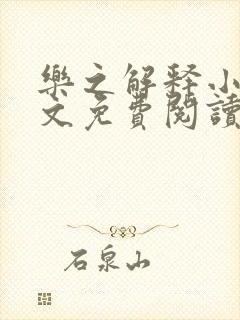 樂之解释小
文免費閱讀
石泉山